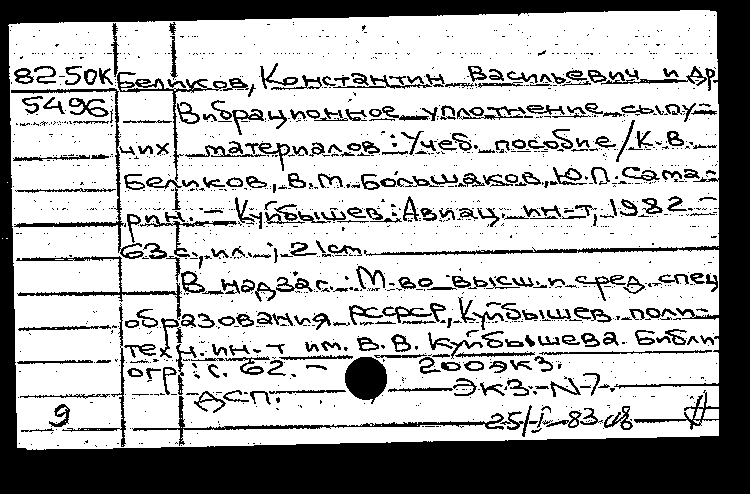 82-50К Беликов, Константин Васильевич и др
5496 Вибрационное уплотнение сыпу-
чих материалов: Учеб. пособие/К.В.
Беликов, В.М. Большаков, Ю.П. Сама-
рин. - Куйбышев: Авиац. ин-т, 1982 -
63 с., ил.; 21 см.
В надзаг.: М-во высш. и сред. спец
образования РСФСР, Куйбышев. поли-
техн. ин-т им. В.В. Куйбышева. Библи
огр.: с. 62. - 200 экз.
ДСП. Экз. N 7.
9 25/I-83